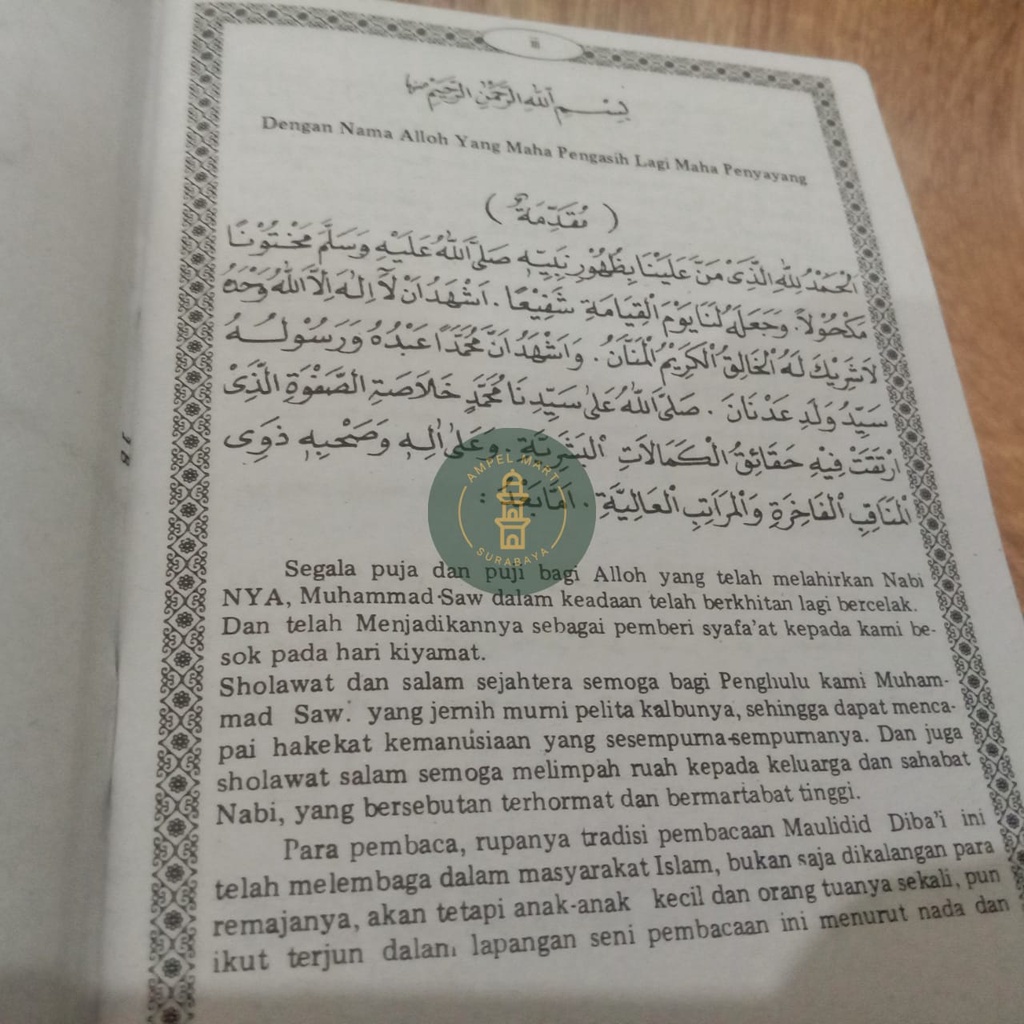 بِسْمِ اللهِ الرَّحْمٰنِ الرَّحِيْمِ
Dengan Nama Alloh Yang Maha Pengasih Lagi Maha Penyayang
( مُقَدِّمَةٌ )
اَلْحَمْدُ لِلّٰهِ الَّذِىْ مَنَّ عَلَيْنَا بِظُهُوْرِ نَبِيِّهٖ صَلَّى اللهُ عَلَيْهِ وَسَلَّمَ مَخْتُوْنًا
مَكْحُوْلًا. وَجَعَلَهُ لَنَا يَوْمَ الْقِيَامَةِ شَفِيْعًا. اَشْهَدُ اَنْ لَآ اِلٰهَ اِلَّا اللهُ وَحْدَهُ
لَاشَرِيْكَ لَهُ الْخَالِقُ الْكَرِيْمُ الْمَنَّانُ. وَاَشْهَدُ اَنَّ مُحَمَّدًا عَبْدُهُ وَرَسُوْلُهُ
سَيِّدُ وَلَدِ عَدْنَانَ. صَلَّى اللهُ عَلٰى سَيِّدِنَا مُحَمَّدٍ خَلَاصَةِ الصَّفْوَةِ الَّذِىْ
ارْتَقَتْ فِيْهِ حَقَائِقُ الْكَمَالَاتِ الْبَشَرِيَّةِ. وَعَلٰى اٰلِهٖ وَصَحْبِهٖ ذَوِى
الْمَنَاقِبِ الْفَاخِرَةِ وَالْمَرَاتِبِ الْعَالِيَّةِ. اَمَّابَعْدُ :
AMPEL MART
SURABAYA
Segala puja dan puji bagi Alloh yang telah melahirkan Nabi
NYA, Muhammad Saw dalam keadaan telah berkhitan lagi bercelak.
Dan telah Menjadikannya sebagai pemberi syafa'at kepada kami be-
sok pada hari kiyamat.
Sholawat dan salam sejahtera semoga bagi Penghulu kami Muham-
mad Saw. yang jernih murni pelita kalbunya, sehingga dapat menca-
pai hakekat kemanusiaan yang sesempurna-sempurnanya. Dan juga
sholawat salam semoga melimpah ruah kepada keluarga dan sahabat
Nabi, yang bersebutan terhormat dan bermartabat tinggi.
Para pembaca, rupanya tradisi pembacaan Maulidid Diba'i ini
telah melembaga dalam masyarakat Islam, bukan saja dikalangan para
remajanya, akan tetapi anak-anak kecil dan orang tuanya sekali, pun
ikut terjun dalam lapangan seni pembacaan ini menurut nada dan